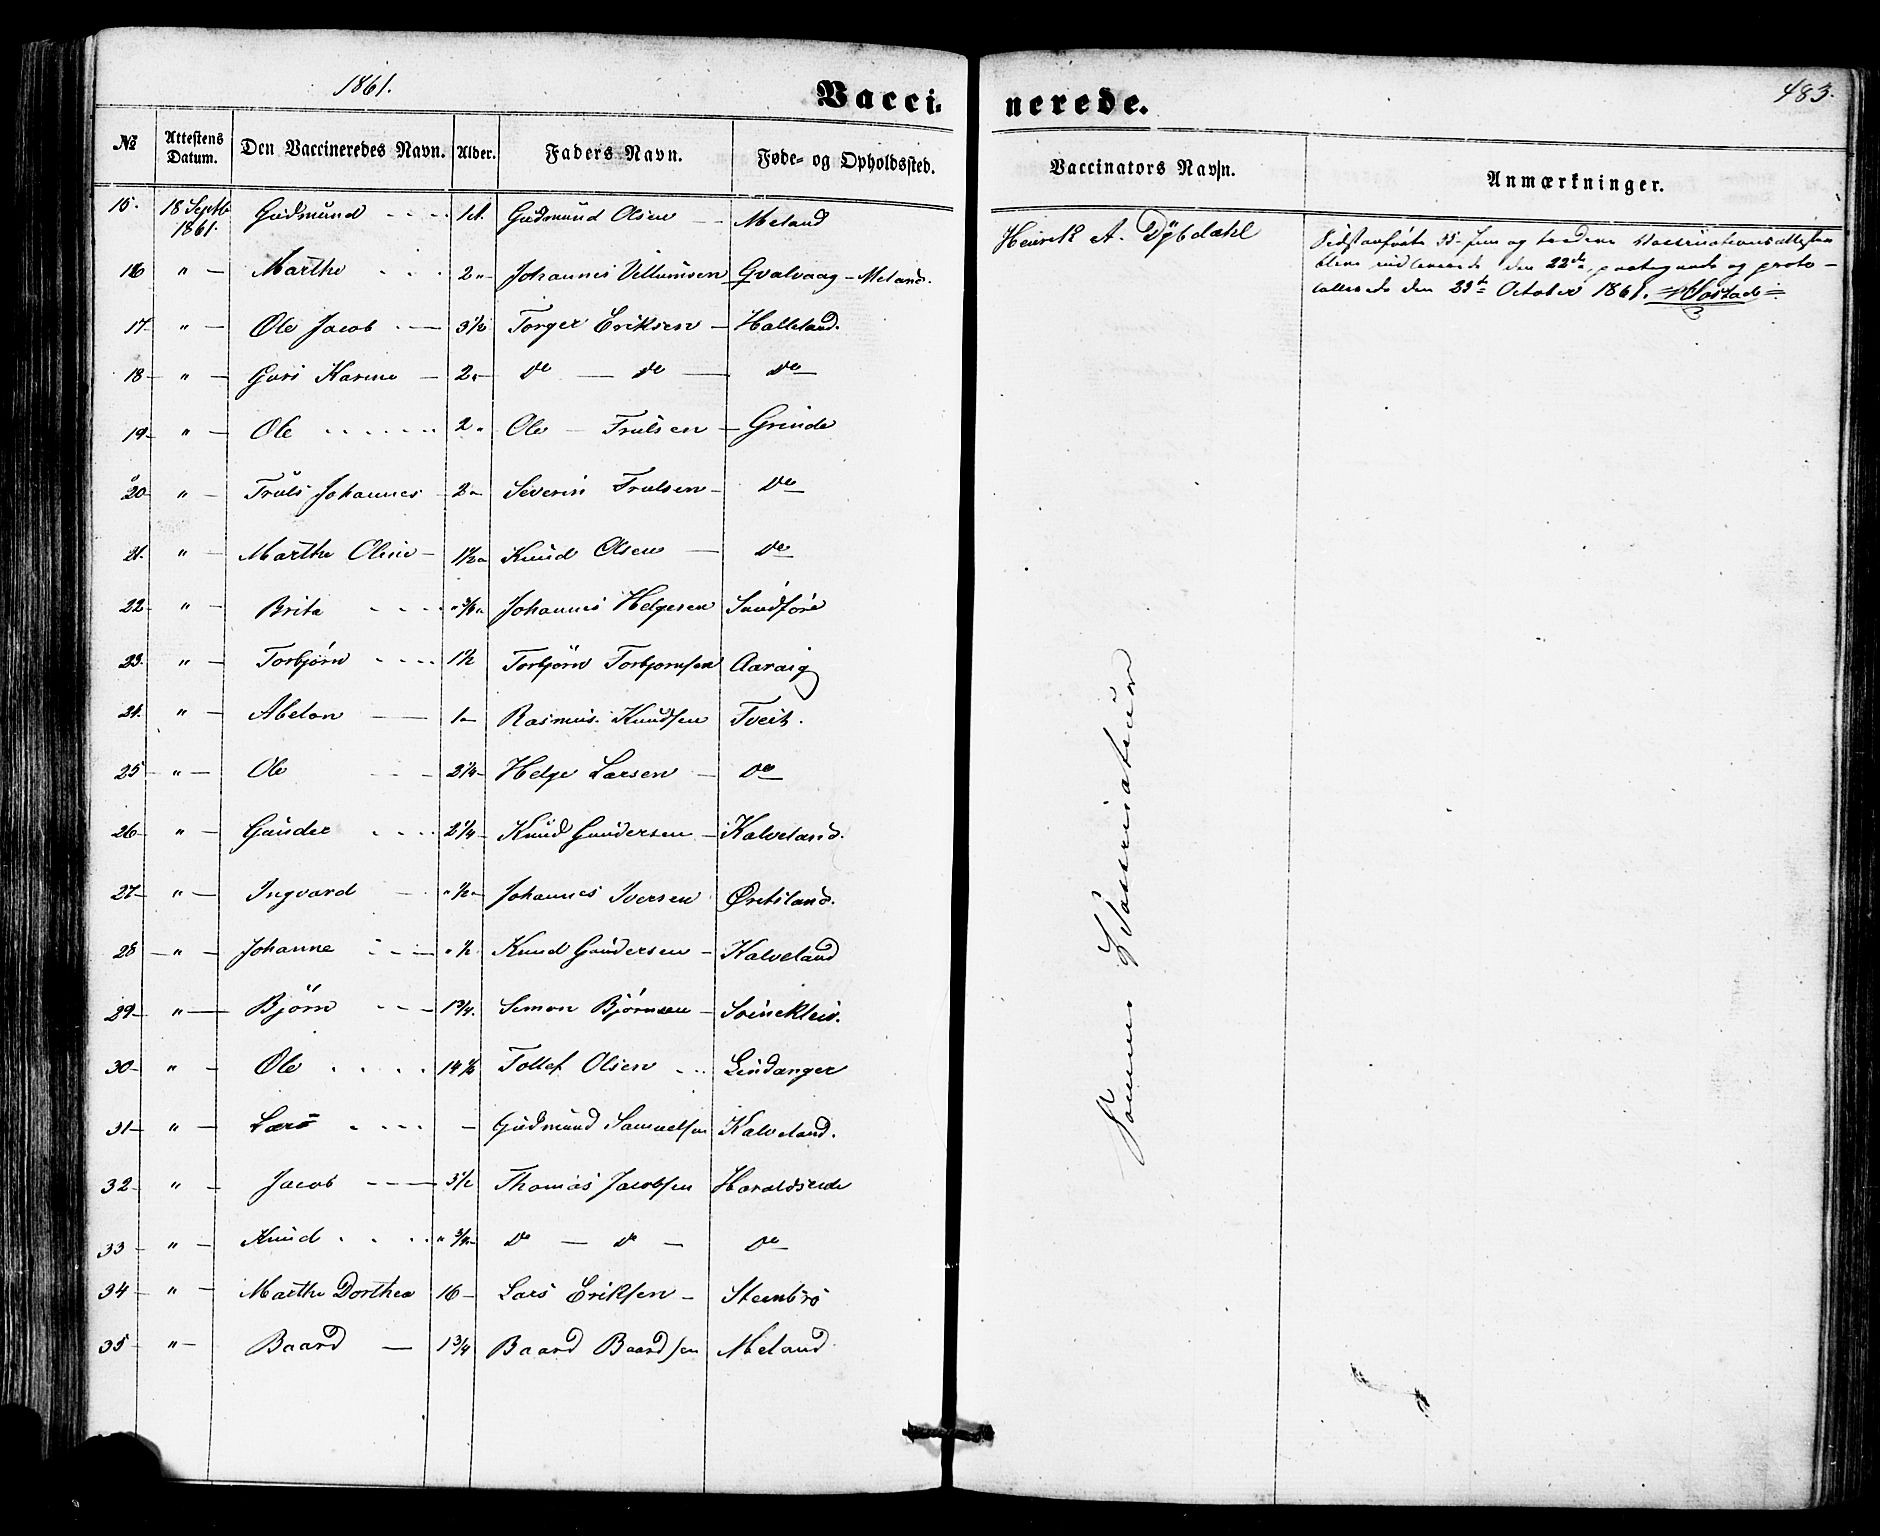 1861.
Vacci-nerede.
483.
№ Attestens Datum. Den Vaccineredes Navn. Alder. Faders Navn. Føde- og Opholdssted. Vaccinators Navn. Anmærkninger.
15. 18 Septb 1861. Gudmund 1 Gudmund Olsen Meland Henrik A. Dybdahl
16 " Marthe 2 " Johannes Villumsen Gvalvaag - Meland.
17 " Ole Jacob 3½ Torger Eriksen Halleland.
18 " Guri Karine 2 " do do do
19 " Ole 2 " Ole Trulsen Grinde
20 " Truls Johannes 2 " Severin Trulsen do
21. " Marthe Oline 1½ " Knud Olsen do
22 " Brita " ¾ " Johannes Helgesen Sundføre
23. " Torbjørn 1½ Torbjörn Torbjørnsen Aaraig
24. " Abelon 1 Rasmus Knudsen Tveit.
25 " Ole 2¼ Helge Larsen do
26 " Gunder 2¼ Knud Gundersen Kalveland.
27 " Ingvard " ½ Johannes Iversen Øretsland.
28 " Johanne " ½ Knud Gundersen Kalveland
29 " Björn 1¾ Simon Bjørnsen Svinekleiv.
30 " Ole 14½ Tollef Olsen Lindanger
31 " Lars - Gudmund Samuelsen Kalveland.
32 " Jacob 3½ Thomas Jacobsen Haraldseide
33 " Knud " ¾ do do do
34 " Marthe Dorthea 16 Lars Eriksen Steensrø
35 " Baard 1¾ Baard Baardsen Meland
Sidstanførte 35 fem og tredive Vaccinationsattester
bleve indleverede den 22de, paategnede og proto-
collerede den 23de October 1861.
Samme Vaccinateur